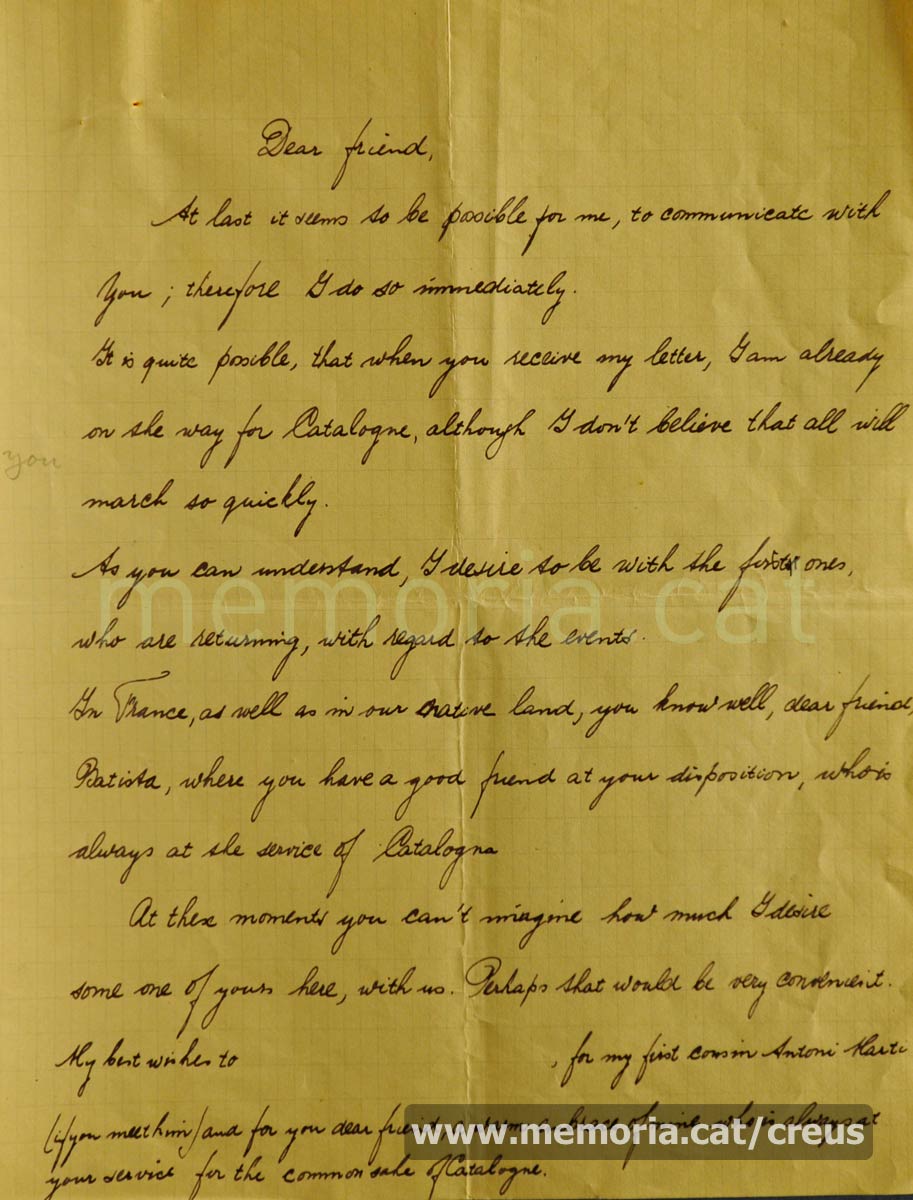 Dear friend,
At last it seems to be possible for me, to communicate with
You; therefore I do so immediately.
It is quite possible, that when you receive my letter, I am already
on the way for Catalogne, although I don't believe that all will
you
march so quickly.
As you can understand, I desire to be with the first ones,
memoria.cat
who are returning, with regard to the events.
In France, as well as in our native land, you know well, dear friend,
Batista, where you have a good friend at your disposition, who is
always at the service of Catalogna
At these moments you can't imagine how much I desire
some one of yours here, with us. Perhaps that would be very convenient.
My best wishes to , for my first cousin Antoni Marti
(if you meet him) and for you dear friend, of mine who is always at
www.memoria.cat/creus
your service for the common sake of Catalogne.